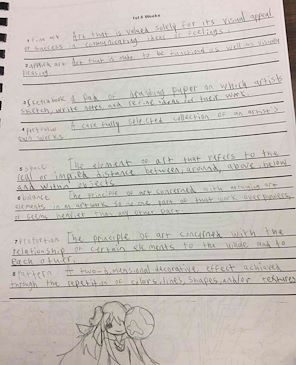 1 fine art Art that is valued solely for its visual appeal
or success in communicating ideas or feelings.
2 applied art Art that is made to be functional as well as visually
pleasing.
3 sketchbook A pad of drawing paper on which artists
sketch, write notes, and refine ideas for their work.
4 portfolio A carefully selected collection of an artist's
own works.
5 space The element of art that refers to the
real or implied distance between, around, above, below
and within objects.
6 balance The principle of art concerned with arranging art
elements in an artwork so no one part of that work overpowers,
or seems heavier than any other part.
7 Proportion The principle of art concerned with the
relationship of certain elements to the whole and to
each other.
8 Pattern A two-dimensional decorative effect achieved
through the repetition of colors, lines, shapes, and/or textures